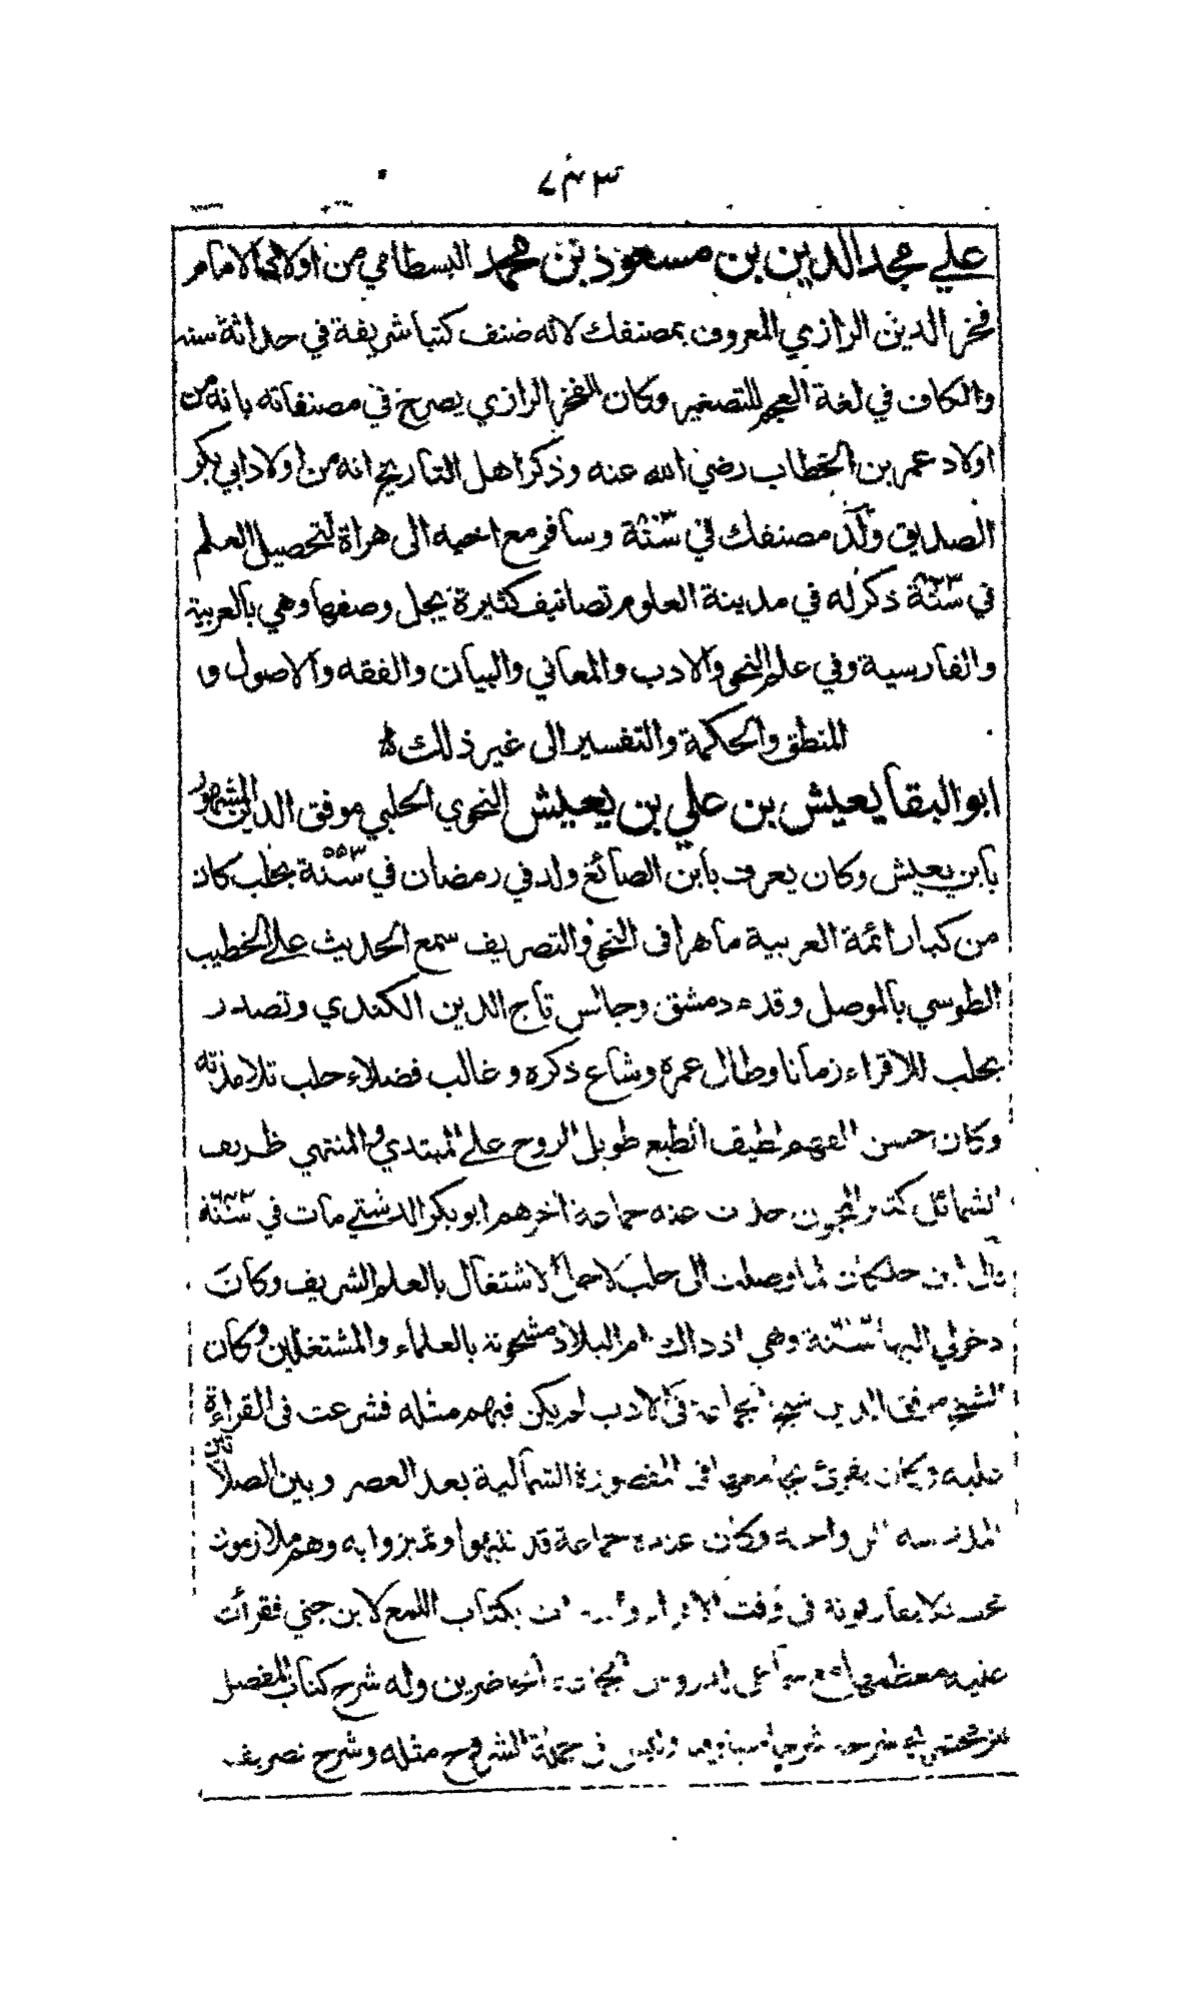 ٧٤٣
علي مجد الدين بن مسعود بن محمد البسطامي من اولاد الامام
فخر الدين الرازي المعروف بمصنفك لانه صنف كتبا شريفة في حداثة سنه
والكاف في لغة العجم للتصغير وكان الفخر الرازي يصرح في مصنفاته بانه من
اولاد عمر بن الخطاب رضي الله عنه وذكر اهل التاريخ انه من اولاد ابي بكر
الصديق ولد مصنفك في سنة وسافر مع اخيه الى هراة لتحصيل العلم
في سنة ٨٢٣ ذكر له في مدينة العلوم تصانيف كثيرة يجل وصفها وهي بالعربية
والفارسية وفي علم النحو والادب والمعاني والبيان والفقه والاصول و
المنطق والحكمة والتفسير الى غير ذلك
ابو البقا يعيش بن علي بن يعيش النحوي الحلبي موفق الدين المشهور
بابن يعيش وكان يعرف بابن الصائغ ولد في رمضان في سنة ٥٥٣ بحلب كان
من كبار ائمة العربية ماهرا فى النحو والتصريف سمع الحديث على الخطيب
الطوسي بالموصل وقدم دمشق وجالس تاج الدين الكندي وتصدر
بحلب للاقراء زمانا وطال عمره وشاع ذكره وغالب فضلاء حلب تلامذته
وكان حسن الفهم لطيف الطبع طويل الروح على المبتدي والمنتهي ظريف
الشمائل كثير المجون حدث عنه جماعة اخرهم ابو بكر الدشتي مات في سنة ٦٤٣
قال ابن خلكان لما وصلت الى حلب لاجل الاشتغال بالعلم الشريف وكان
دخولي اليها سنة وهي اذ ذاك ام البلاد مشحونة بالعلماء والمشتغلين وكان
الشيخ موفق الدين شيخ الجماعة فى الادب لم يكن فيهم مثله فشرعت فى القراءة
عليه وكان يقرئ بجامعها فى المقصورة الشمالية بعد العصر وبين الصلاتين
بالمدرسه الرواحية وكان عنده جماعة قد تنبهوا وتميزوا به وهم ملازمون
مجلسه لا يفارقونه فى وقت الاقراء بكتاب اللمع لابن جني فقرأت
عليه معظمها مع سماعي لدروس الجماعة الحاضرين وله شرح كتاب المفصل
للزمخشري شرحه شرحا وليس فى جملة الشروح مثله وشرح تصريف